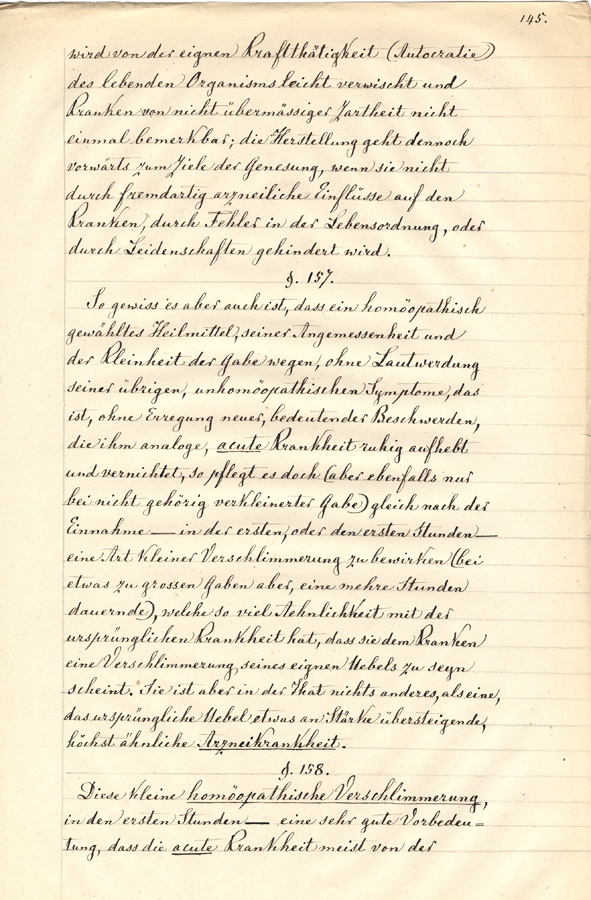 145.
wird von der eignen Kraftthätigkeit (Autocratie)
des lebenden Organisms leicht verwischt und
Kranken von nicht übermässiger Zartheit nicht
einmal bemerkbar; die Herstellung geht dennoch
vorwärts zum Ziele der Genesung, wenn sie nicht
durch fremdartig arzneiliche Einflüsse auf den
Kranken, durch Fehler in der Lebensordnung, oder
durch Leidenschaften gehindert wird.
§. 157.
So gewiss es aber auch ist, dass ein homöopathisch
gewähltes Heilmittel, seiner Angemessenheit und
der Kleinheit der Gabe wegen, ohne Lautwerdung
seiner übrigen, unhomöopathischen Symptome, das
ist, ohne Erregung neuer, bedeutender Beschwerden,
die ihm analoge, acute Krankheit ruhig aufhebt
und vernichtet, so pflegt es doch (aber ebenfalls nur
bei nicht gehörig verkleinerter Gabe) gleich nach der
Einnahme — in der ersten, oder den ersten Stunden —
eine Art kleiner Verschlimmerung zu bewirken (bei
etwas zu grossen Gaben aber, eine mehre Stunden
dauernde), welche so viel Aehnlichkeit mit der
ursprünglichen Krankheit hat, dass sie dem Kranken
eine Verschlimmerung seines eignen Uebels zu seyn
scheint. Sie ist aber in der That nichts anderes, als eine,
das ursprüngliche Uebel etwas an Stärke übersteigende,
höchst ähnliche Arzneikrankheit.
§. 158.
Diese kleine homöopathische Verschlimmerung,
in den ersten Stunden — eine sehr gute Vorbedeu=
tung, dass die acute Krankheit meist von der